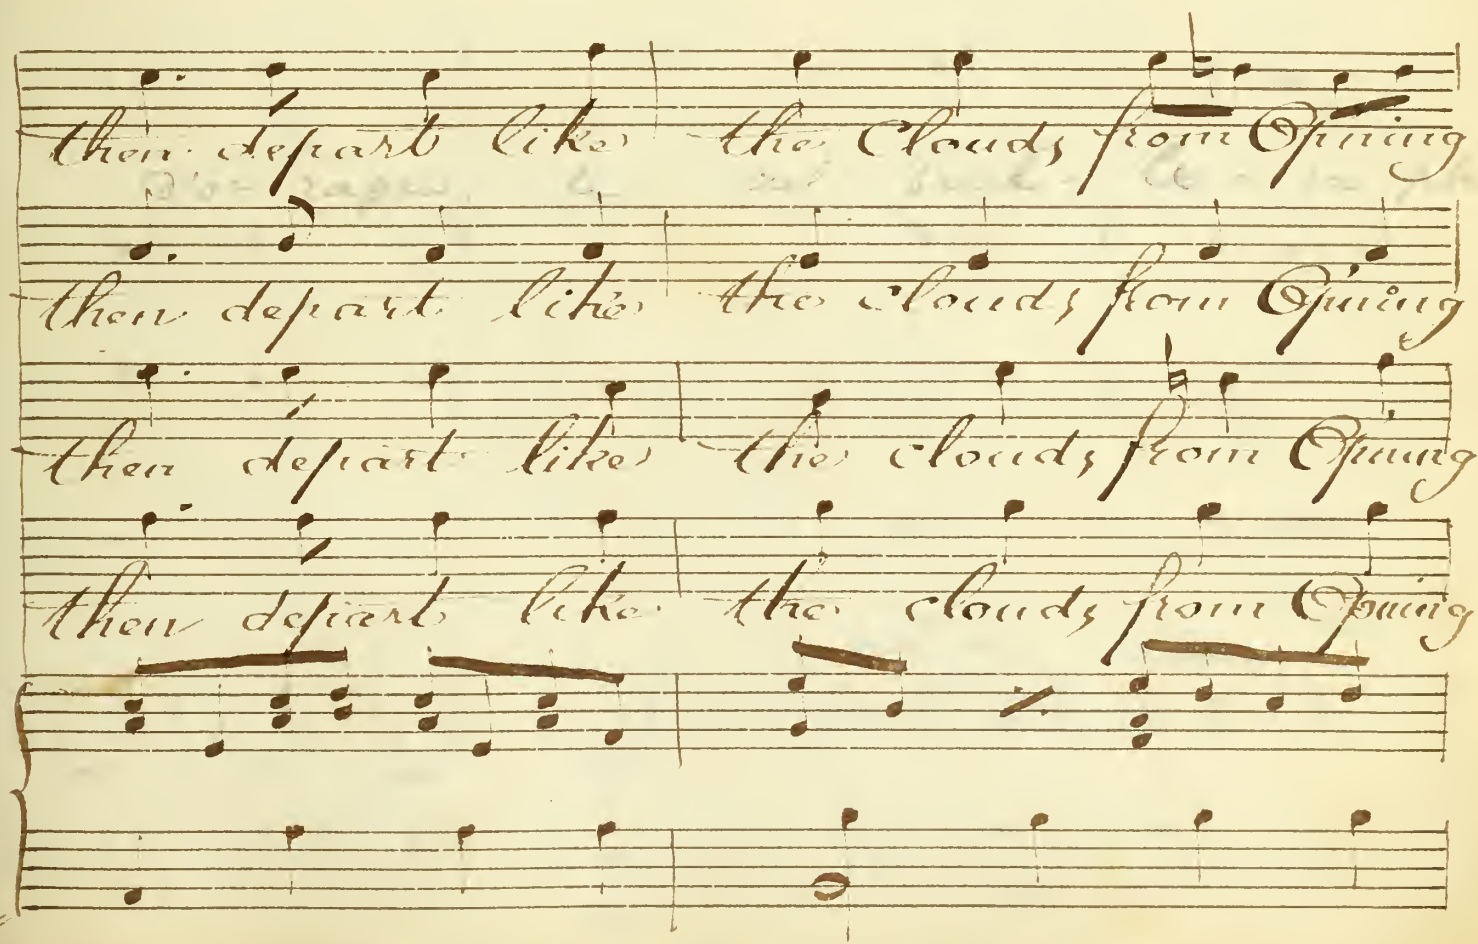 then depart like the Clouds from Op'ning
then depart like the clouds from Op'ning
then depart like the clouds from Op'ning
then depart like the clouds from Op'ning